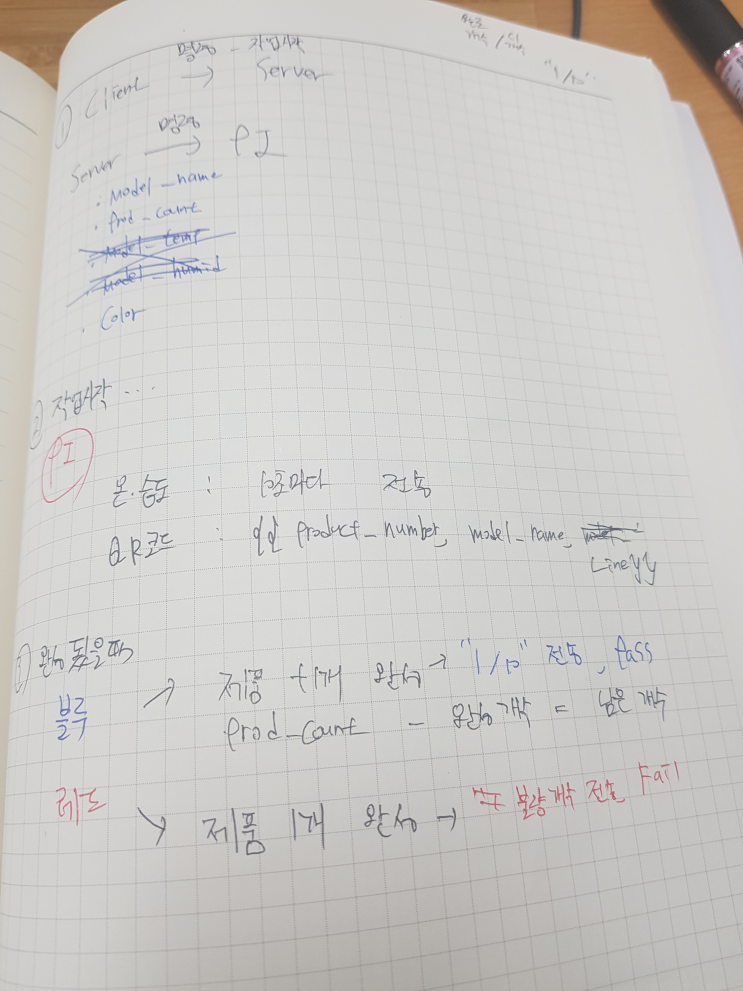 완료
개수 / 총 개수
"1/10"
명령 - 작업시작
① Client → Server
명령
Server → PI
· Model_name
· Prod_count
· Model_temp
· Model_humid
· Color
② 작업시작 ...
PI
온.습도 : 10초마다 전송
QR코드 : product_number, model_name,
Lineyy
③ 완성 됐을때
블루 → 제품 1개 완성 → "1/10" 전송, Pass
Prod_Count - 완성개수 = 남은 개수
레드 → 제품 1개 완성 → 불량개수 전송 Fail